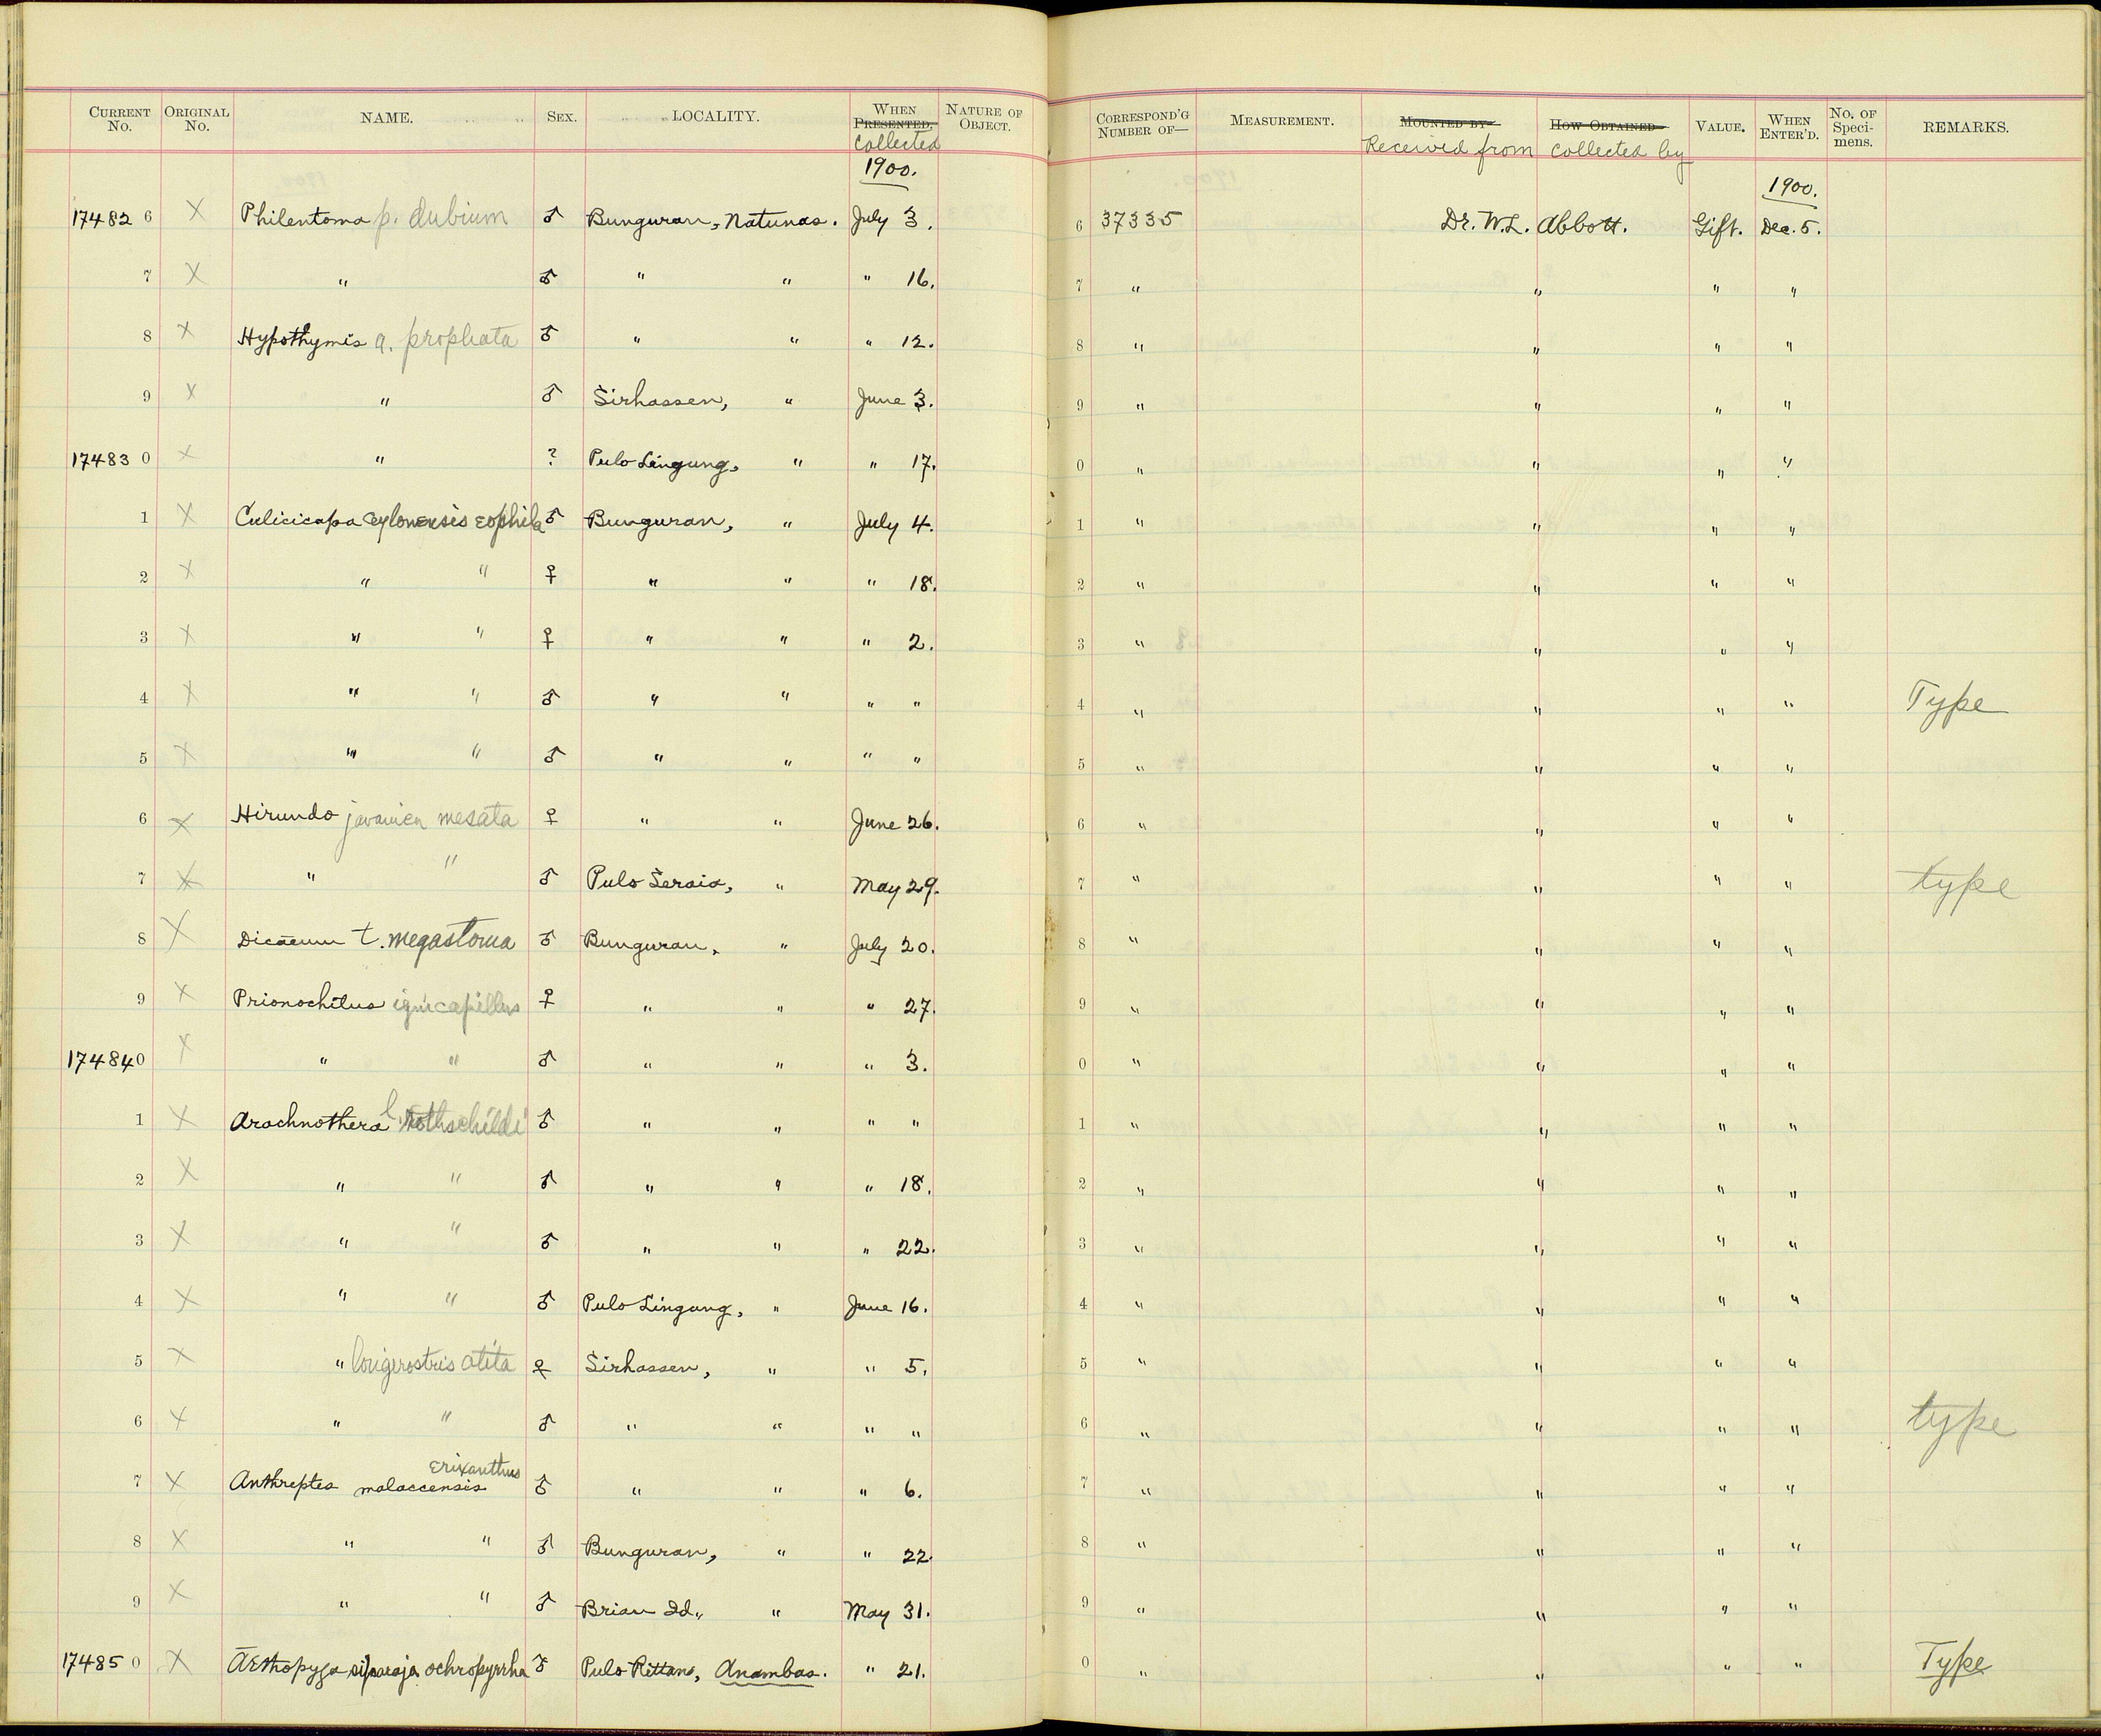 CURRENT No. ORIGINAL No. NAME. SEX. LOCALITY. WHEN PRESENTED. collected NATURE OF OBJECT. CORRESPOND'G NUMBER OF— MEASUREMENT. MOUNTED BY Received from HOW OBTAINED collected by VALUE. WHEN ENTER'D. No. OF Speci-mens. REMARKS.
1900. 1900.
17482 6 X Philentoma p. dubium ♂ Bunguran, Natunas. July 3. 6 37335 Dr. W.L. Abbott. Gift. Dec. 5.
7 X " ♂ " " " 16. 7 " " " "
8 X Hypothymis a. prophata ♂ " " " 12. 8 " " " "
9 X " ♂ Sirhassen, " June 3. 9 " " " "
17483 0 X " ? Pulo Lingung, " " 17. 0 " " " "
1 X Culicicapa ceylonensis eophila ♂ Bunguran, " July 4. 1 " " " "
2 X " " ♀ " " " 18. 2 " " " "
3 X " " ♀ " " " 2. 3 " " " "
4 X " " ♂ " " " " 4 " " " " Type
5 X " " ♂ " " " " 5 " " " "
6 X Hirundo javanica mesata ♀ " " June 26. 6 " " " "
7 X " " ♂ Pulo Seraia, " May 29. 7 " " " " type
8 X Dicaeum t. megastoma ♂ Bunguran, " July 20. 8 " " " "
9 X Prionochilus ignicapillus ♀ " " " 27. 9 " " " "
17484 0 X " " ♂ " " " 3. 0 " " " "
1 X Arachnothera l. rothschildi ♂ " " " " 1 " " " "
2 X " " ♂ " " " 18. 2 " " " "
3 X " " ♂ " " " 22. 3 " " " "
4 X " " ♂ Pulo Lingung, " June 16. 4 " " " "
5 X " longirostris atita ♀ Sirhassen, " " 5. 5 " " " "
6 X " " ♂ " " " " 6 " " " " type
7 X Anthreptes malaccensis erixanthus ♂ " " " 6. 7 " " " "
8 X " " ♂ Bunguran, " " 22. 8 " " " "
9 X " " ♂ Brian Id., " May 31. 9 " " " "
17485 0 X Æthopyga siparaja ochropyrrha ♂ Pulo Rittan, Anambas. " 21. 0 " " " " Type